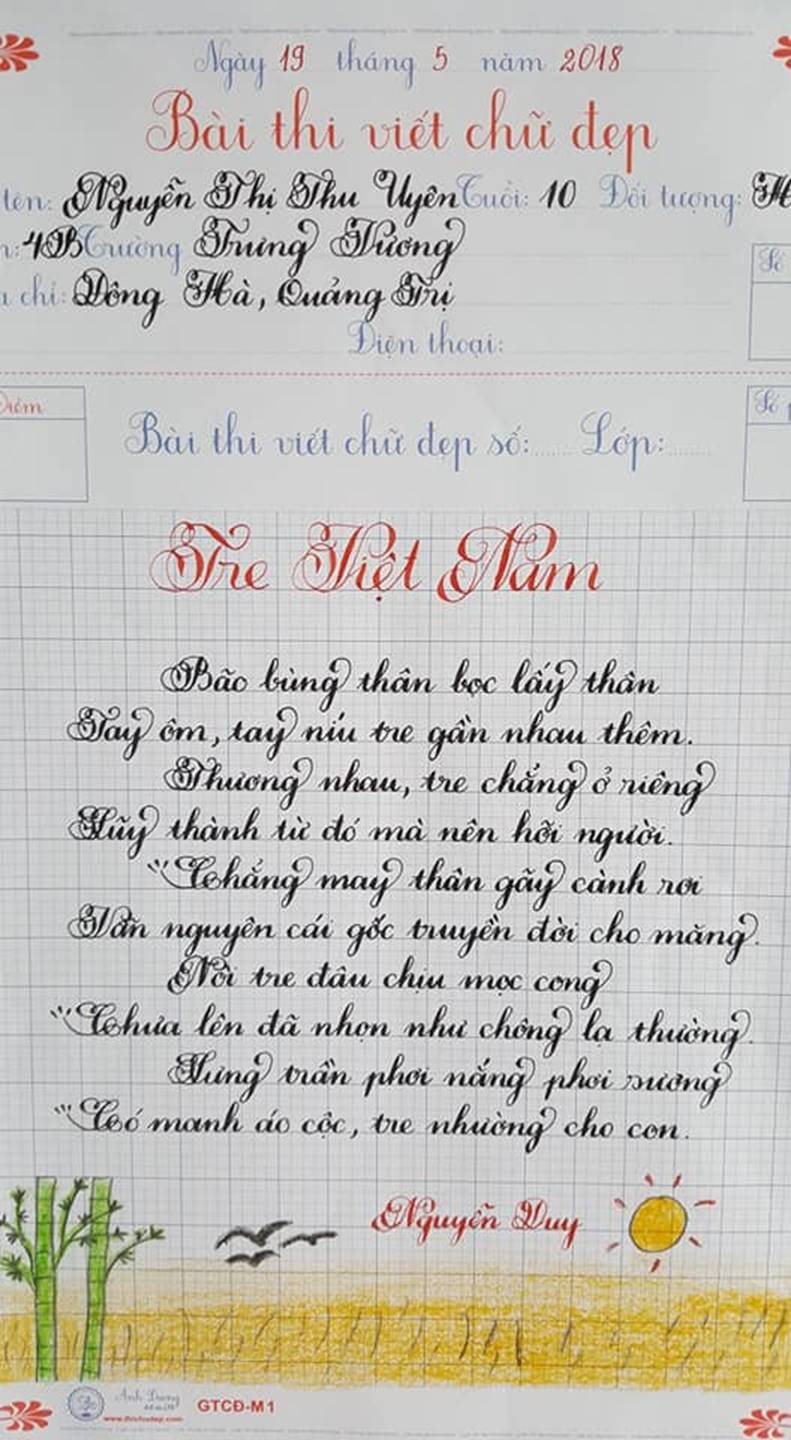 Ngày 19 tháng 5 năm 2018
Bài thi viết chữ đẹp
tên: Nguyễn Thị Thu Uyên Tuổi: 10 Đối tượng: H
4B Trường Trưng Vương
chỉ: Đông Hà, Quảng Trị
Số
Điện thoại:
Điểm
Bài thi viết chữ đẹp số:...... Lớp:......
Số p
Tre Việt Nam
Bão bùng thân bọc lấy thân
Tay ôm, tay níu tre gần nhau thêm.
Thương nhau, tre chẳng ở riêng
Lũy thành từ đó mà nên hỡi người.
Chẳng may thân gãy cành rơi
Vẫn nguyên cái gốc truyền đời cho măng.
Nòi tre đâu chịu mọc cong
Chưa lên đã nhọn như chông lạ thường.
Lưng trần phơi nắng phơi sương
Có manh áo cộc, tre nhường cho con.
Nguyễn Duy
Ánh Dương
GTCĐ-M1